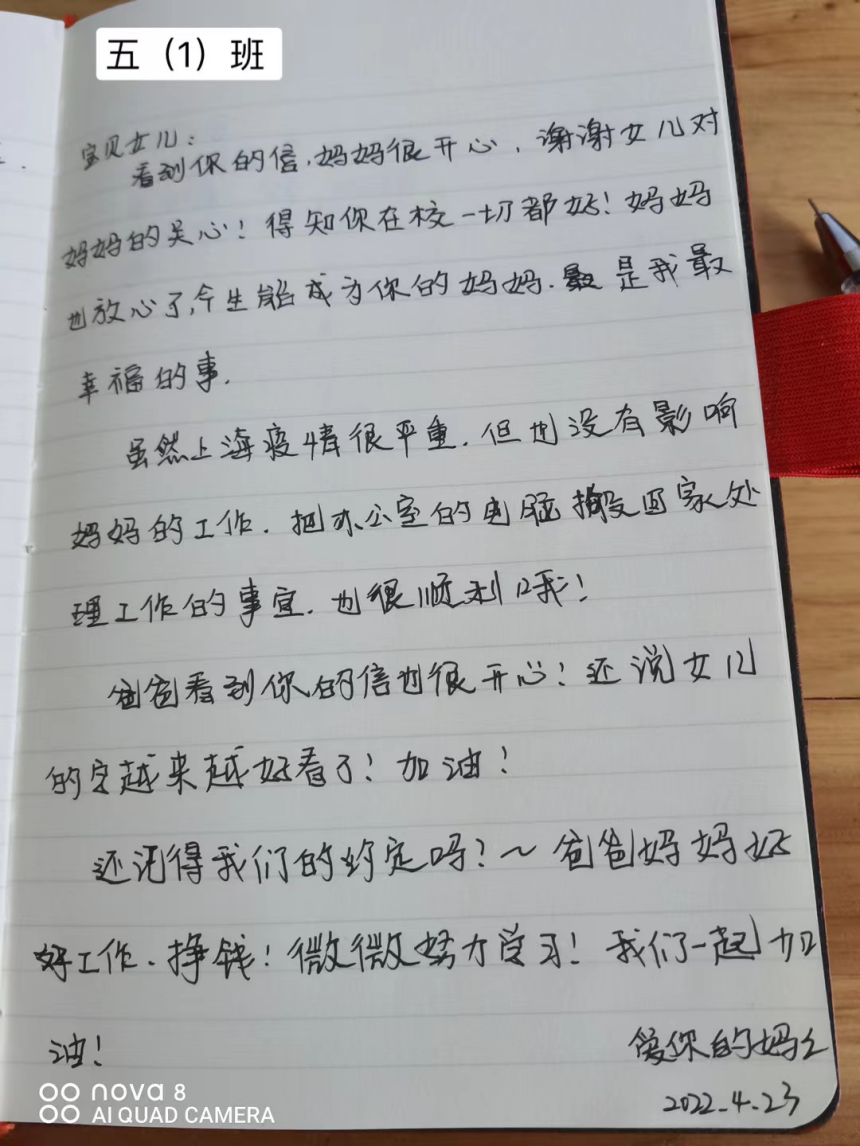 五（1）班
宝贝女儿：
看到你的信，妈妈很开心，谢谢女儿对
妈妈的关心！得知你在校一切都好！妈妈
也放心了，今生能成为你的妈妈.是我最
幸福的事.
虽然上海疫情很严重.但也没有影响
妈妈的工作.把办公室的电脑搬回家处
理工作的事宜.也很顺利哦！
爸爸看到你的信也很开心！还说女儿
的字越来越好看了！加油！
还记得我们的约定吗？～爸爸妈妈好
好工作.挣钱！微微努力学习！我们一起加
油！
爱你的妈妈
2022.4.23
nova 8
AI QUAD CAMERA